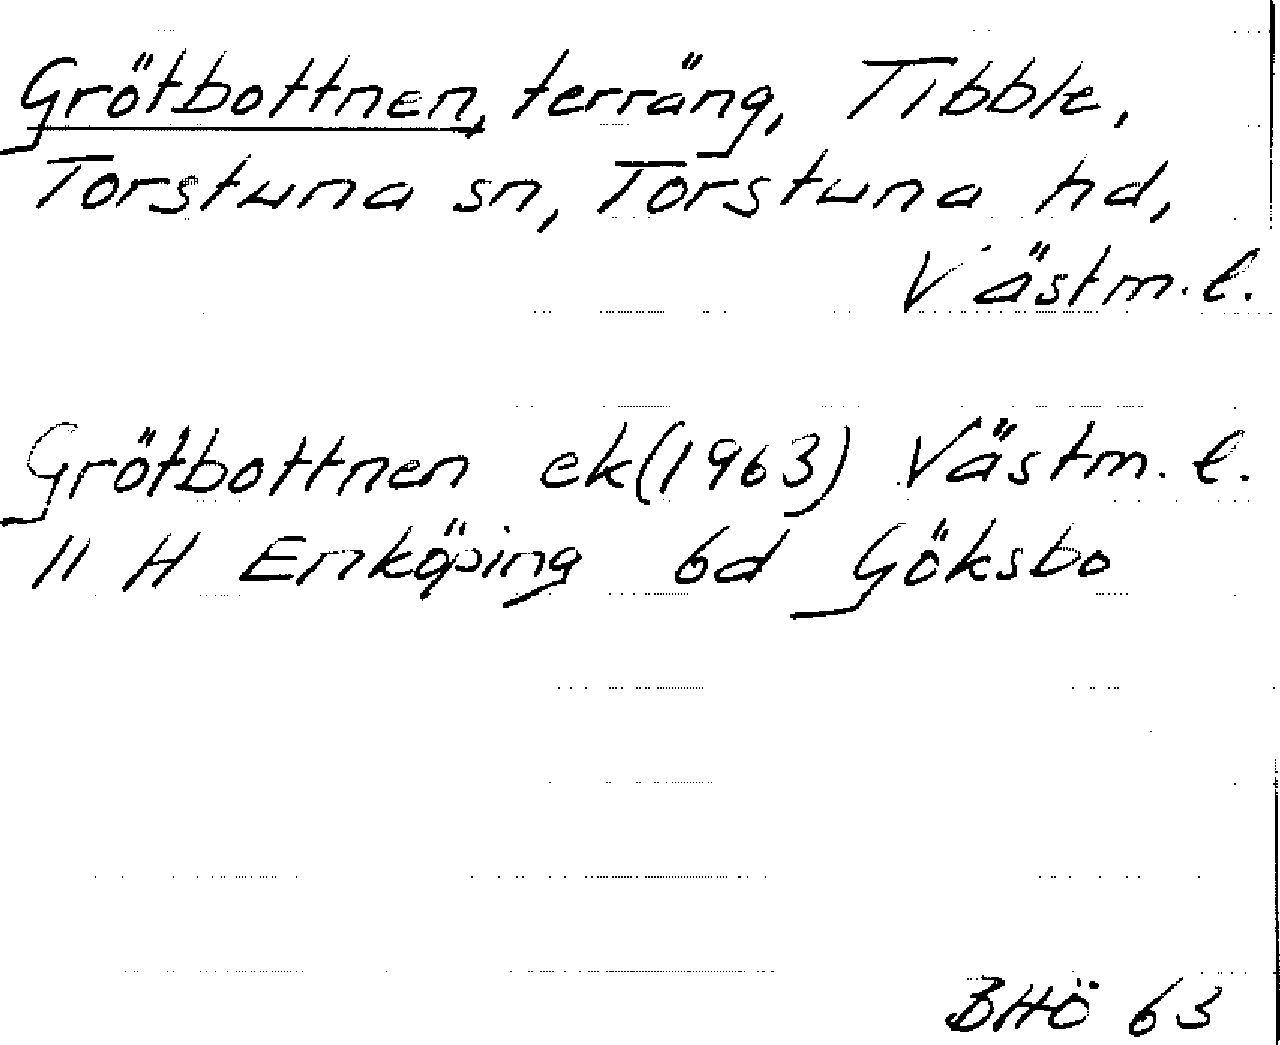 Grötbottnen, terräng, Tibble,
Torstuna sn, Torstuna hd,
Västm.l.
Grötbottnen ek(1963) Västm.l.
11 H Enköping 6d Göksbo
BHÖ 63